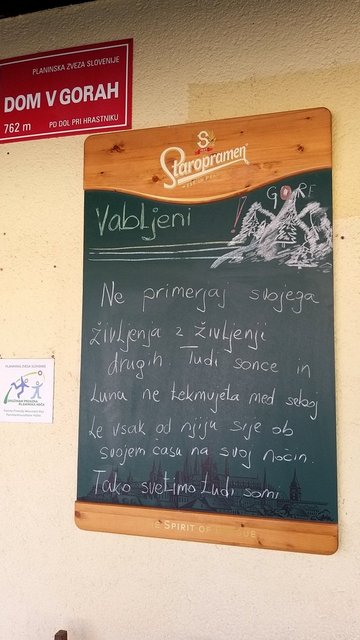 PLANINSKA ZVEZA SLOVENIJE
DOM V GORAH
762 m PD DOL PRI HRASTNIKU
S
Staropramen
Vabljeni
! GORE
Ne primerjaj svojega
življenja z življenji
drugih Tudi sonce in
Luna ne tekmujeta med seboj
Le vsak od njiju sije ob
svojem času na svoj način.
Tako svetimo tudi sami
PLANINSKA ZVEZA SLOVENIJE
DRUŽINAM PRIJAZNA
PLANINSKA KOČA
THE SPIRIT OF